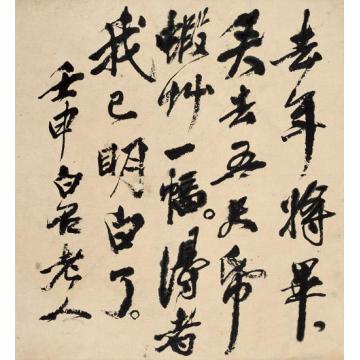 去年將畢、
失去五尺帋
蝦艸一幅。得者
我已明白了。
壬申白石老人